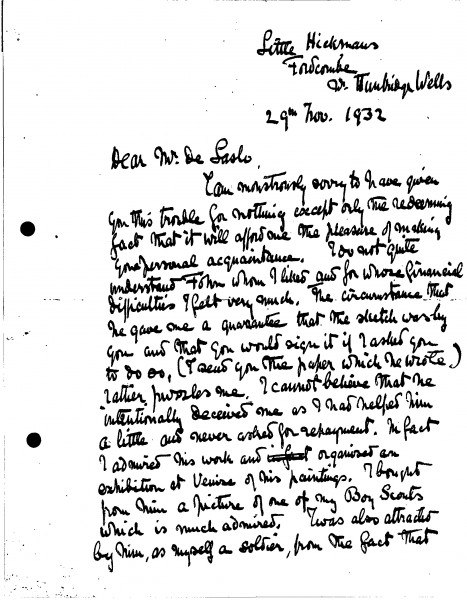 Little Hickmans
Fordcombe
Nr. Tunbridge Wells
29th Nov. 1932
Dear Mr. De Laslo,
I am monstrously sorry to have given
you this trouble for nothing except only the redeeming
fact that it will afford me the pleasure of making
your personal acquaintance. I do not quite
understand Föhn whom I liked and for whose financial
difficulties I felt very much. The circumstance that
he gave me a guarantee that the sketch was by
you and that you would sign it if I asked you
to do so, (I send you the paper which he wrote.)
rather puzzles me. I cannot believe that he
intentionally deceived me as I had helped him
a little and never asked for repayment. In fact
I admired his work and in fact organised an
exhibition at Venice of his paintings. I bought
from him a picture of one of my Boy Scouts
which is much admired. I was also attracted
by him, as myself a soldier, from the fact that